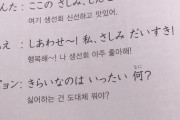 んた：ここの さしみ、しんせ
여기 생선회 신선하고 맛있어.
え しあわせ〜! 私、さしみ だいすき!
행복해〜! 나 생선회 아주 좋아해!
ョン：きらいなのは いったい 何?
なに
싫어하는 건 도대체 뭐야?